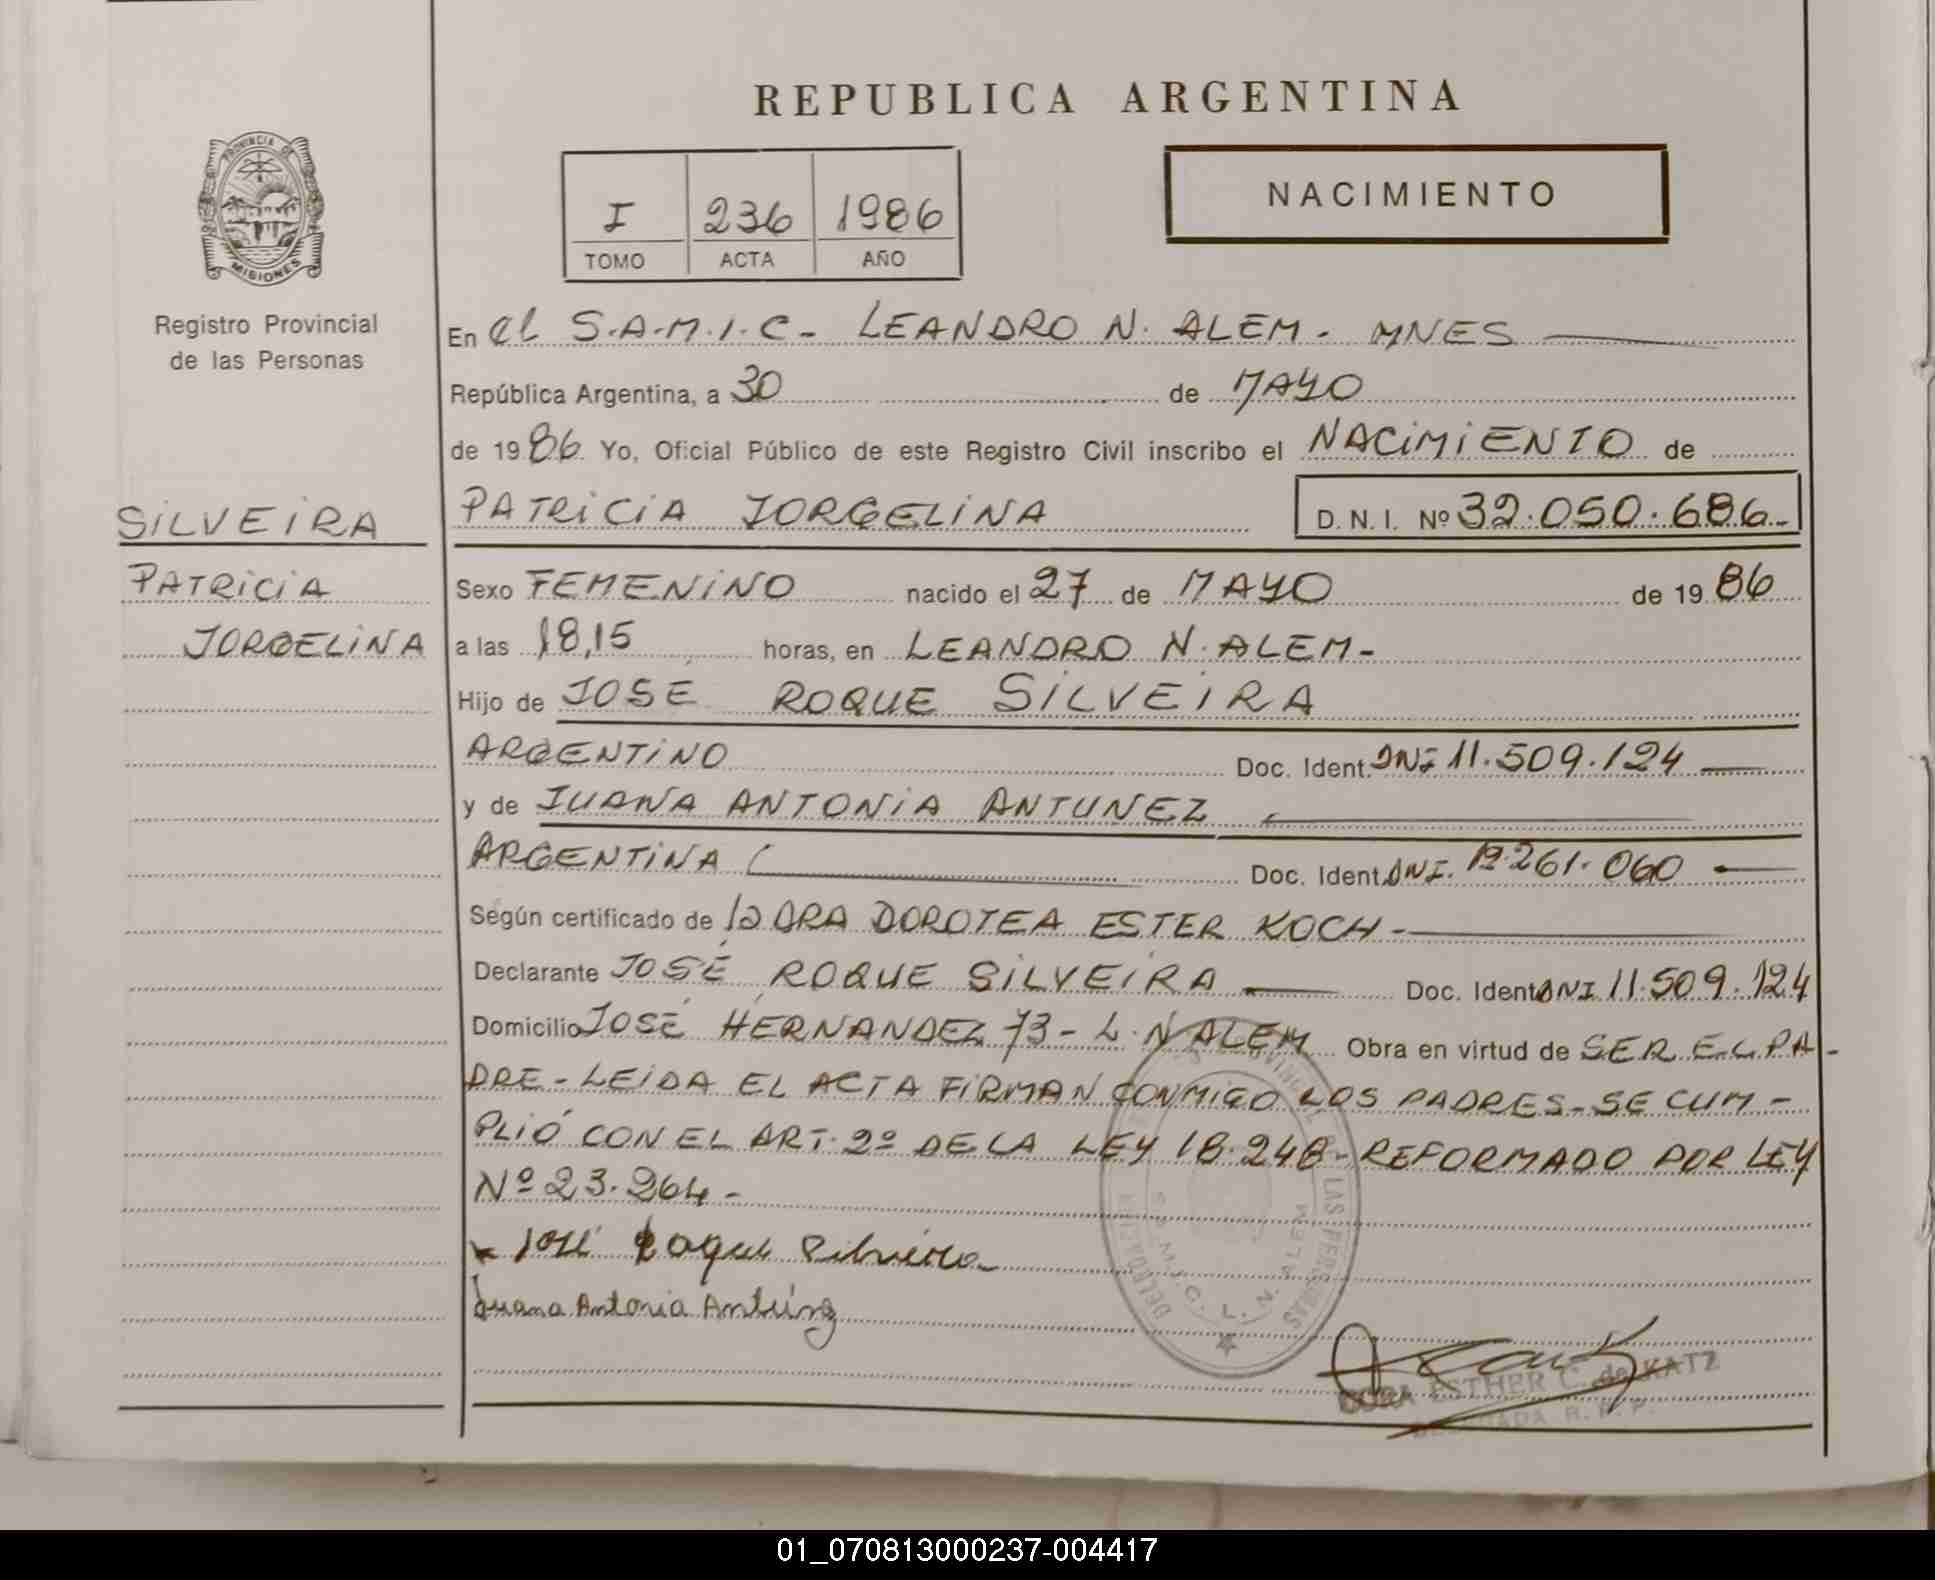 REPUBLICA ARGENTINA
PROVINCIA DE
MISIONES
Registro Provincial
de las Personas
I 236 1986
TOMO ACTA AÑO
NACIMIENTO
En el S.A.M.I.C- LEANDRO N. ALEM - MNES
República Argentina, a 30 de MAYO
de 1986 Yo, Oficial Público de este Registro Civil inscribo el NACIMIENTO de
PATRICIA JORGELINA D.N.I. Nº 32.050.686-
SILVEIRA
PATRICIA
JORGELINA
Sexo FEMENINO nacido el 27 de MAYO de 1986
a las 18,15 horas, en LEANDRO N. ALEM-
Hijo de JOSE ROQUE SILVEIRA
ARGENTINO Doc. Ident. DNI 11.509.124
y de JUANA ANTONIA ANTUNEZ
ARGENTINA Doc. Ident. DNI. 12.261.060
Según certificado de la DRA DOROTEA ESTER KOCH-
Declarante JOSÉ ROQUE SILVEIRA Doc. Ident. DNI 11.509.124
Domicilio JOSÉ HERNANDEZ 73- L.N ALEM Obra en virtud de SER EL PA-
DRE- LEIDA EL ACTA FIRMAN CONMIGO LOS PADRES- SE CUM-
PLIÓ CON EL ART. 2º DE LA LEY 18.248- REFORMADO POR LEY
Nº 23.264-
José Roque Silveira
Juana Antonia Antúnez
S.A.M.I.C. L. N. ALEM
DE LAS PERSONAS
ESTHER C. de KATZ
DELEGADA R. P. P.
01_070813000237-004417